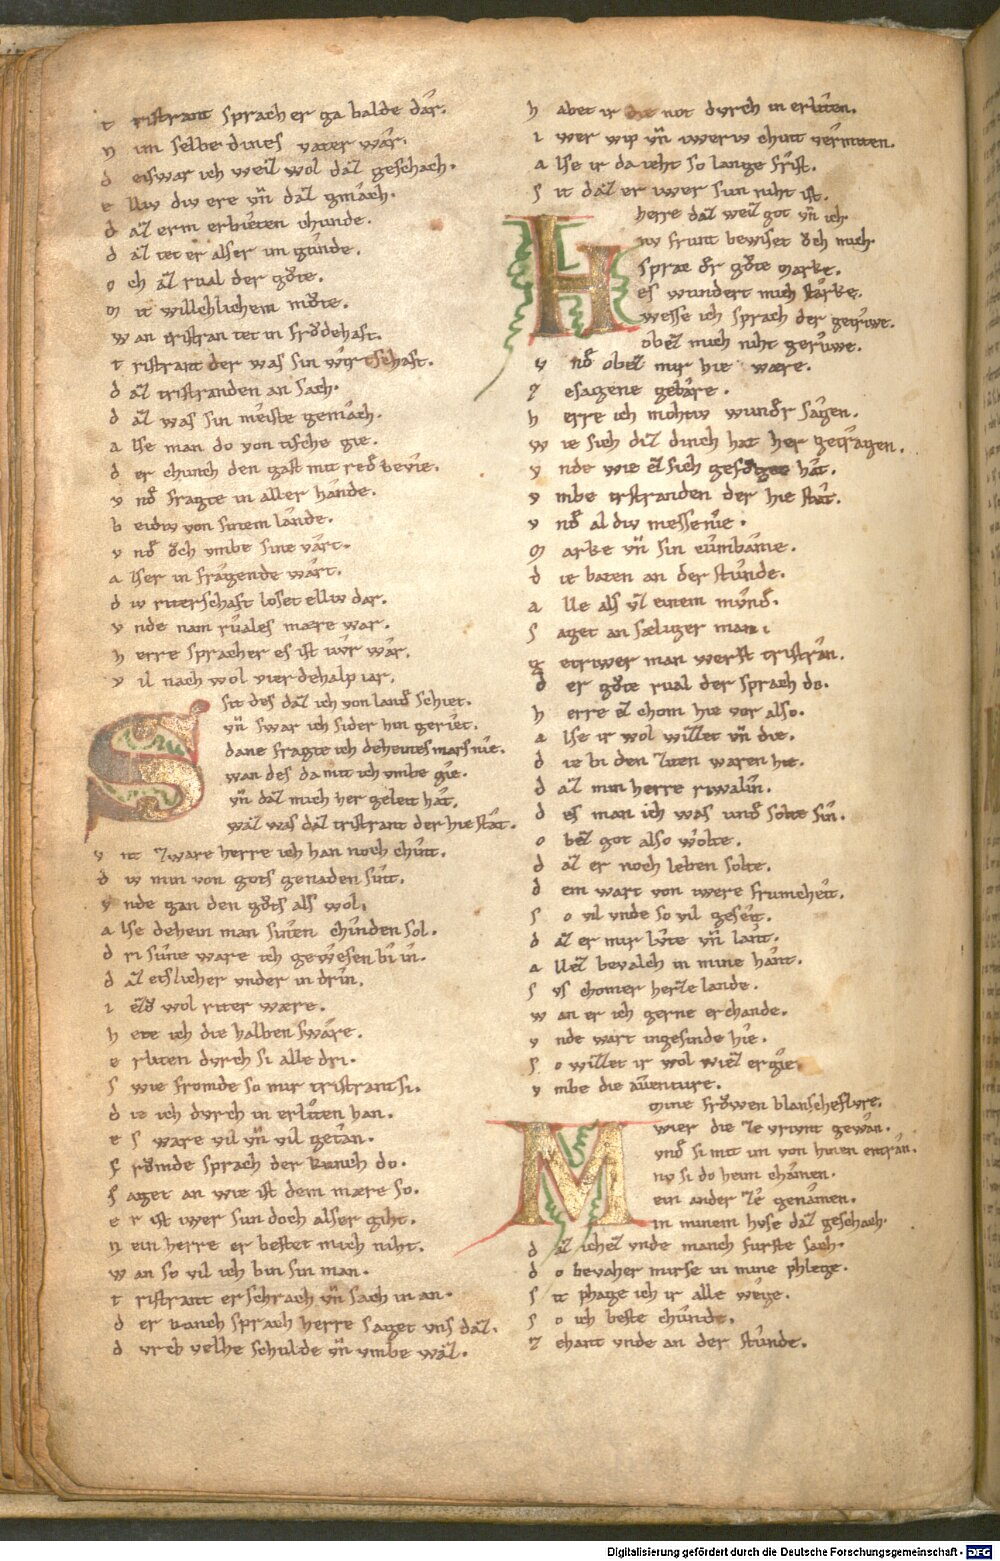 t ristrant sprach er ga balde dar.
n im selbe dines vater war.
d eiswar ich weiz wol daz geschach.
e lliv div ere vn̄ daz gmach.
d az er im erbieten chunde.
d az tet er als er im gunde.
o ch az rual der gůte.
m it willchlichem můte.
w an tristran tet in frŏdehaft.
t ristrant der was sin wirtschaft.
d az tristranden an sach.
d az was sin meiste gemach.
a lse man do von tische gie.
d er chunch den gast mit red bevie.
v nd fragte in aller hande.
b eidiv von sinem lande.
v nd ŏch vmbe sine vart.
a lser in fragende wart.
d iv riterschaft loset elliv dar.
v nde nam ruales mære war.
h erre sprach er es ist wir war.
v il nach wol vierdehalp iar.
S sit des daz ich von land schiet.
vn̄ swar ich sider hin geriet.
dane fragte ich deheines mars nie.
wan des da mit ich vmbe gie.
vn̄ daz mich her geleit hat.
waz was daz tristrant der hie stat.
v nt zware herre ich han noch chint.
d iv min von gots genaden sint.
v nde gan den gůts als wol.
a lse dehein man sinen chinden sol.
d ri sune ware ich gewesen bi in.
d az etslicher vnder in drin.
i etzd wol riter wære.
h ete ich die halben sware.
e rliten dvrch si alle dri.
s wie fromde so mir tristrant si.
d ie ich dvrch in erliten han.
e s ware vil vn̄ vil getan.
f rŏmde sprach der kunch do.
s aget an wie ist dem mære so.
e r ist iwer sun doch alser giht.
n ein herre er bestet mich niht.
w an so vil ich bin sin man.
t ristrant erschrach vn̄ sach in an.
d er kunch sprach herre saget vns daz.
d vrch welhe schulde vn̄ vmbe waz.
h abet ir die not dvrch in erliten.
i wer wip vn̄ iweriv chint vermiten.
a lse ir da ieht so lange frist.
s it daz er iwer sun niht ist.
H herre daz weiz got vn̄ ich
nv frunt bewiset ŏch mich.
sprac der gůte marke.
es wundert mich starke.
wesse ich sprach der getriwe.
obez mich niht geruwe.
v nd obez mir hie wære.
z esagene gebære.
h erre ich mohtiv wundr sagen.
w ie sich diz dinch hat her getragen.
v nde wie ez sich gefŏget hat.
v mbe tristranden der hie stat.
v nd al div messenie.
m arke vn̄ sin cumbanie.
d ie baten an der stunde.
a lle als vz einem mund.
s aget an sæliger man.
g etriwer man werst tristran.
d er gůte rual der sprach do.
h erre ez chom hie vor also.
a lse ir wol willet vn̄ die.
d ie bi den ziten waren hie.
d az min herre riwalin.
d es man ich was und solte sin.
o bez got also wolte.
d az er noch leben solte.
d em wart von iwere frumcheit.
s o vil vnde so vil geseit.
d az er mir lvte vn̄ lant.
a llez bevalch in mine hant.
s vs chomer herze lande.
w an er ich gerne erchande.
v nde wart ingesinde hie.
s o willet ir wol wiez ergie.
v mbe die aventure.
M mine frŏwen blanscheflvre.
wier die ze vrivnt gewan.
vnd si mit im von hinen entran.
nv si do heim chamen.
ein ander ze genamen.
in minem hvse daz geschach.
d az ichez vnde manch furste sach.
d o bevaher mirse in mine phlege.
s it phlage ich ir alle wege.
s o ich beste chunde.
z ehant vnde an der stunde.
Digitalisierung gefördert durch die Deutsche Forschungsgemeinschaft - DFG